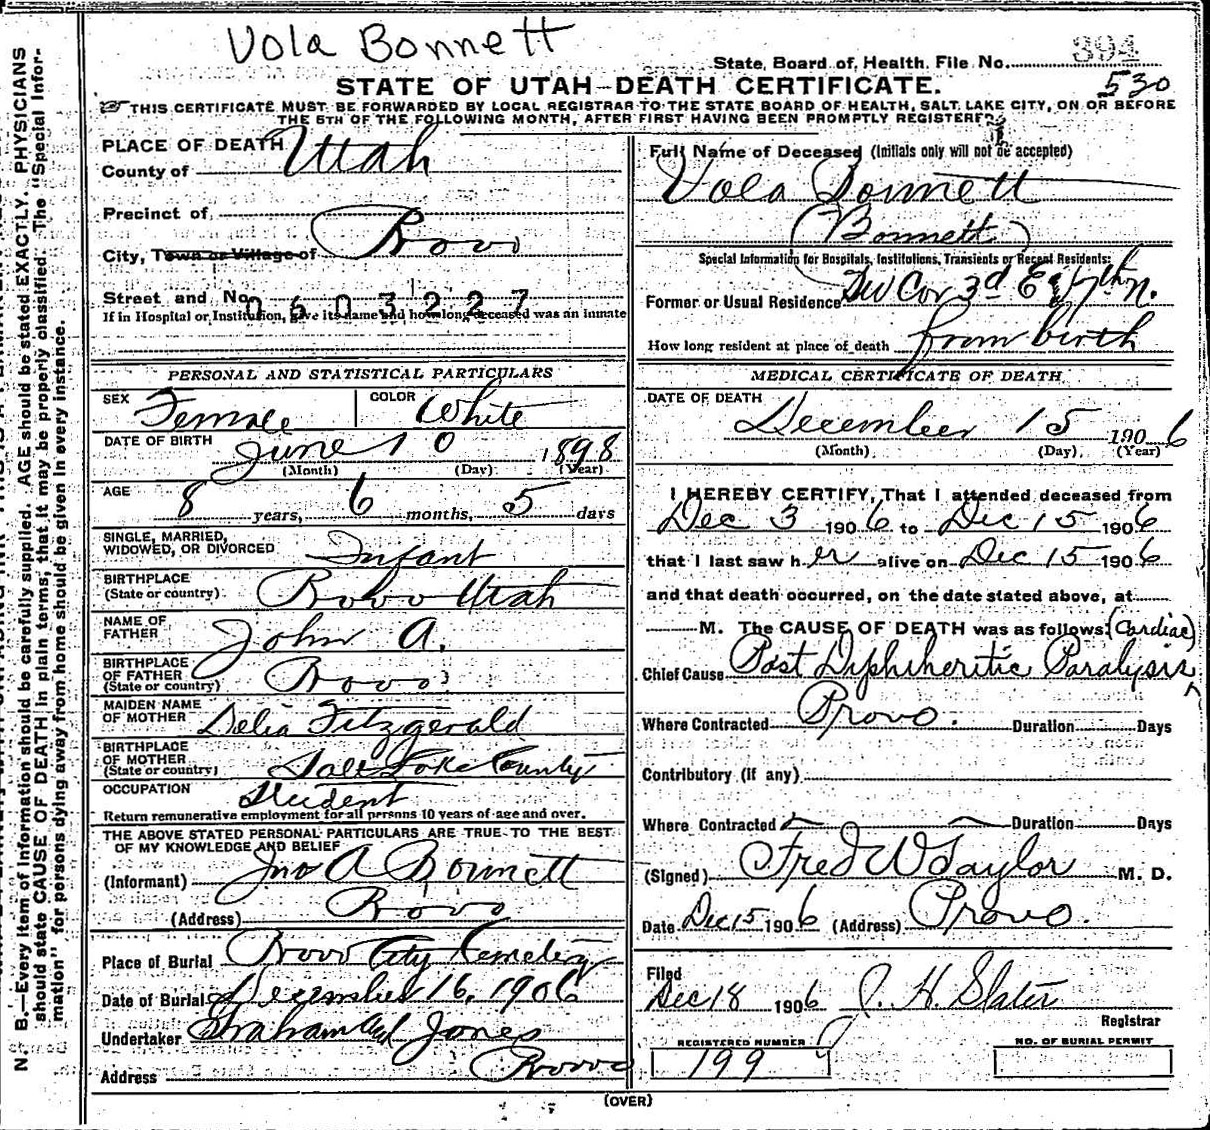 Vola Bonnett
State Board of Health File No. 394
530
STATE OF UTAH—DEATH CERTIFICATE.
THIS CERTIFICATE MUST BE FORWARDED BY LOCAL REGISTRAR TO THE STATE BOARD OF HEALTH, SALT LAKE CITY, ON OR BEFORE
THE 5TH OF THE FOLLOWING MONTH, AFTER FIRST HAVING BEEN PROMPTLY REGISTERED
PLACE OF DEATH
County of Utah
Precinct of
City, Town or Village of Provo
Street and No. 2603227
If in Hospital or Institution, give its name and how long deceased was an inmate
PERSONAL AND STATISTICAL PARTICULARS
SEX Female COLOR White
DATE OF BIRTH June 10 1898
(Month) (Day) (Year)
AGE 8 years, 6 months, 5 days
SINGLE, MARRIED,
WIDOWED, OR DIVORCED Infant
BIRTHPLACE
(State or country) Provo Utah
NAME OF
FATHER John A.
BIRTHPLACE
OF FATHER
(State or country) Provo
MAIDEN NAME
OF MOTHER Delia Fitzgerald
BIRTHPLACE
OF MOTHER
(State or country) Salt Lake County
OCCUPATION Student
Return remunerative employment for all persons 10 years of age and over.
THE ABOVE STATED PERSONAL PARTICULARS ARE TRUE TO THE BEST
OF MY KNOWLEDGE AND BELIEF
(Informant) Jno A Bonnett
(Address) Provo
Place of Burial Provo City Cemetery
Date of Burial December 16, 1906
Undertaker Graham and Jones
Address Provo
Full Name of Deceased (Initials only will not be accepted)
Vola Bonnett
(Bonnett)
Special Information for Hospitals, Institutions, Transients or Recent Residents:
Former or Usual Residence Cor 3d E & 7th N.
How long resident at place of death from birth
MEDICAL CERTIFICATE OF DEATH
DATE OF DEATH
December 15 1906
(Month) (Day) (Year)
I HEREBY CERTIFY, That I attended deceased from
Dec 3 1906 to Dec 15 1906
that I last saw her alive on Dec 15 1906
and that death occurred, on the date stated above, at
M. The CAUSE OF DEATH was as follows: (Cardiac)
Chief Cause Post Diphtheritic Paralysis
Where Contracted Provo. Duration Days
Contributory (if any)
Where Contracted Duration Days
(Signed) Fred W Taylor M. D.
Date Dec 15 1906 (Address) Provo.
Filed
Dec 18 1906 J. H. Slater
Registrar
REGISTERED NUMBER
199
NO. OF BURIAL PERMIT
(OVER)
N. B.—Every item of information should be carefully supplied. AGE should be stated EXACTLY. PHYSICIANS
should state CAUSE OF DEATH in plain terms, that it may be properly classified. The "Special Infor-
mation" for persons dying away from home should be given in every instance.